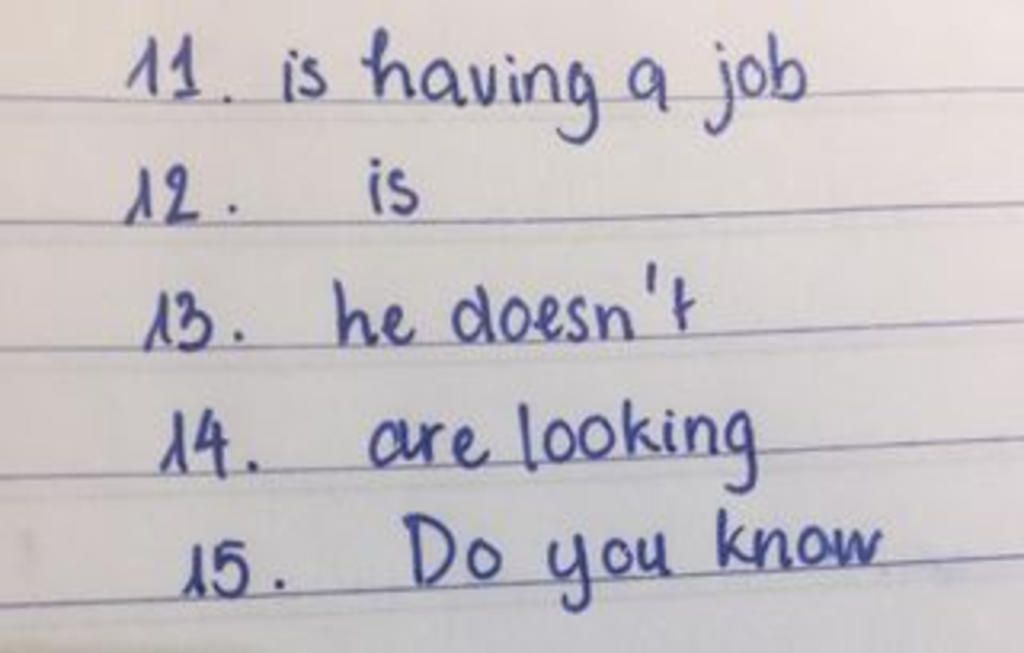 11. is having a job
12. is
13. he doesn't
14. are looking
15. Do you know